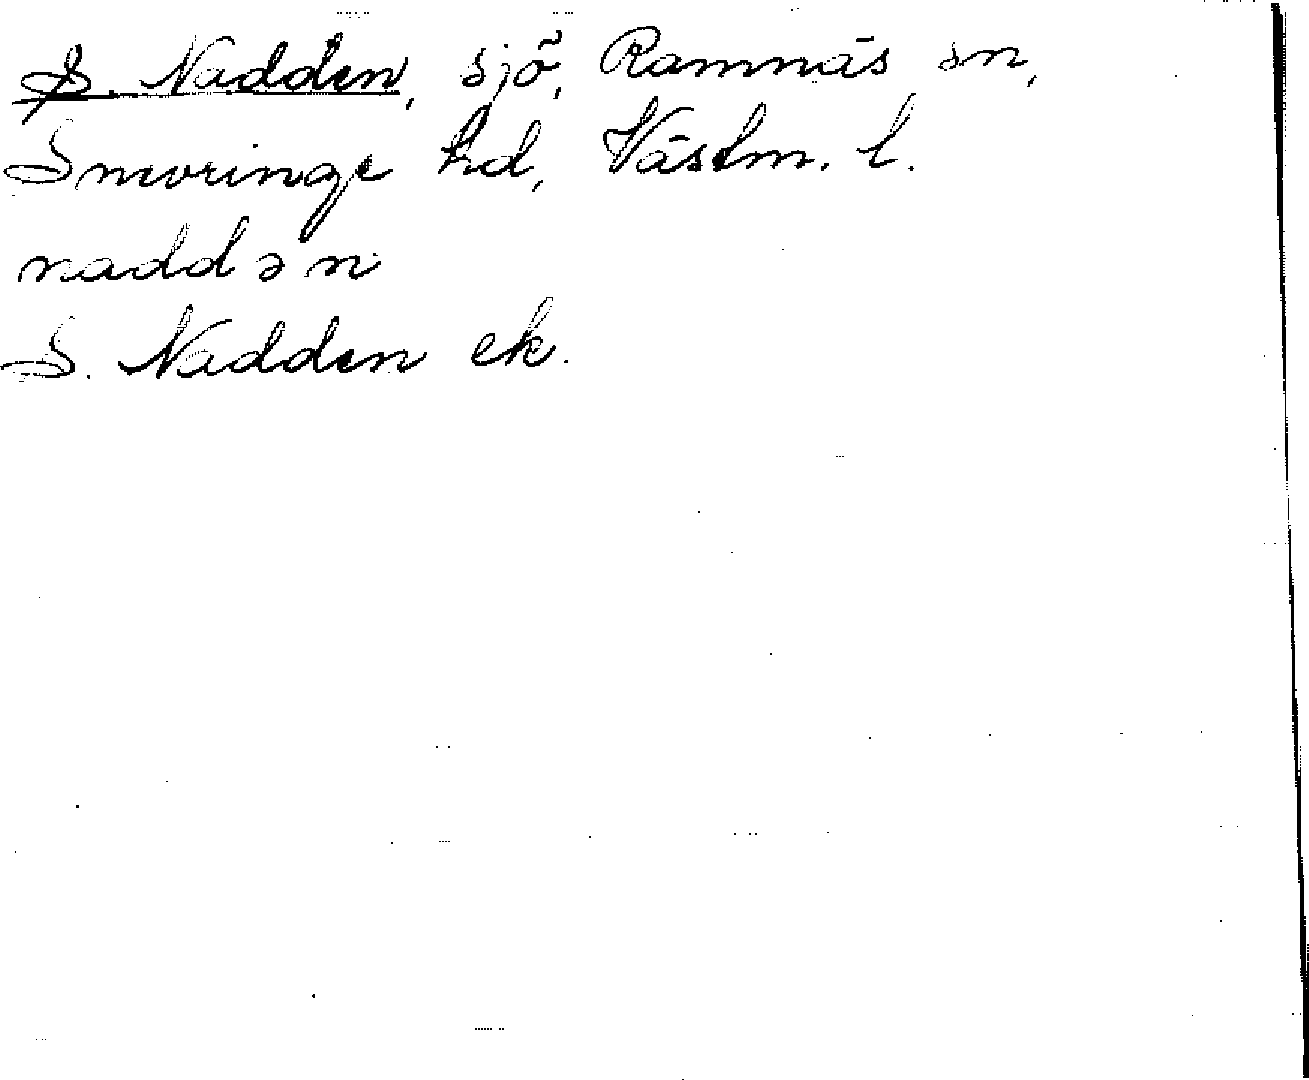 S. Nadden, sjö, Ramnäs sn,
Snevringe hd, Västm. l.
naddən
S. Nadden ek.